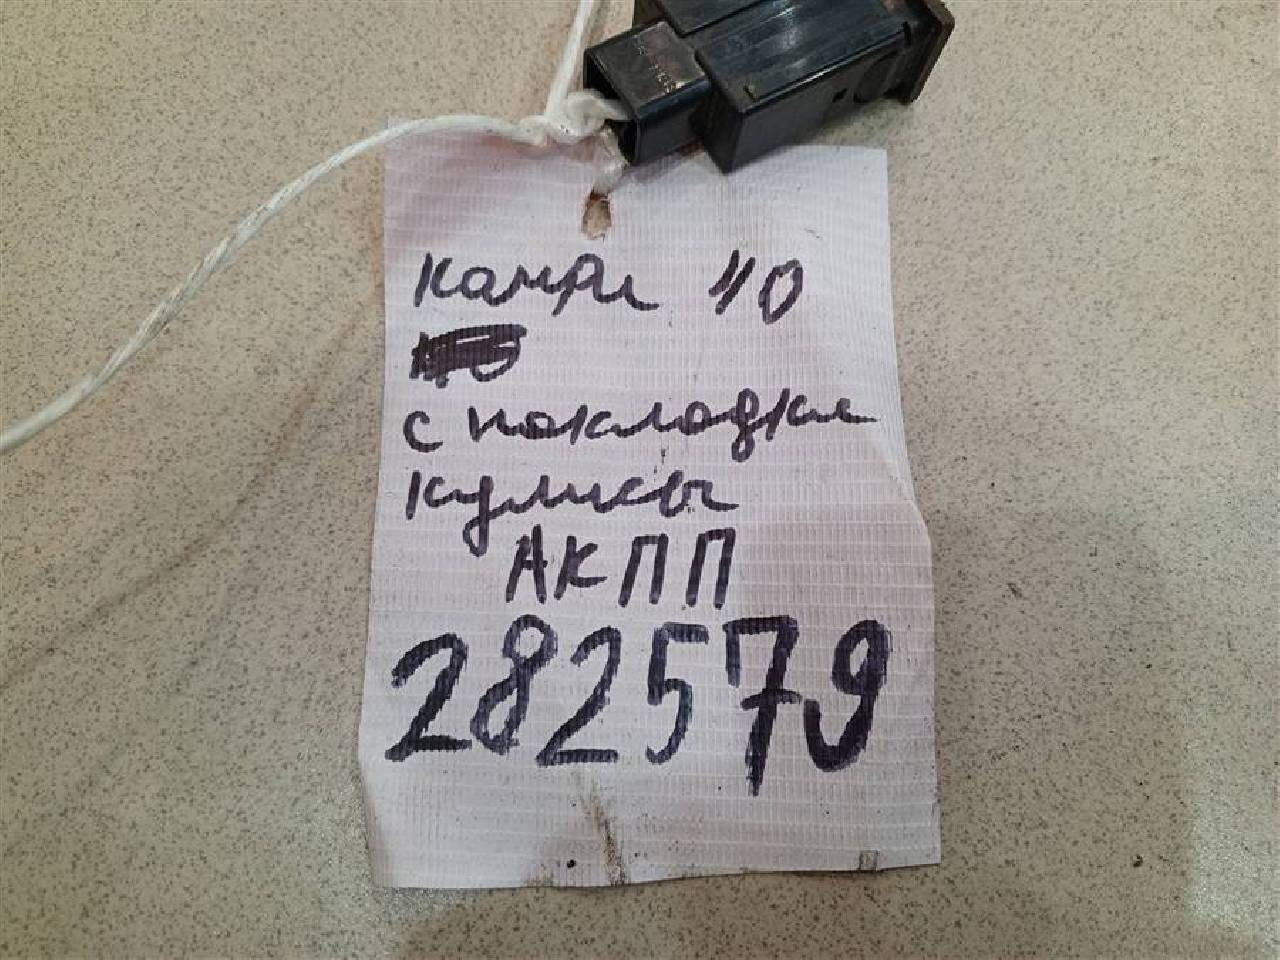 камри 40
с накладки
кулисы
АКПП
282579